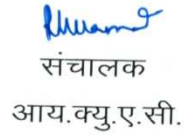 संचालक
आय.क्यु.ए.सी.